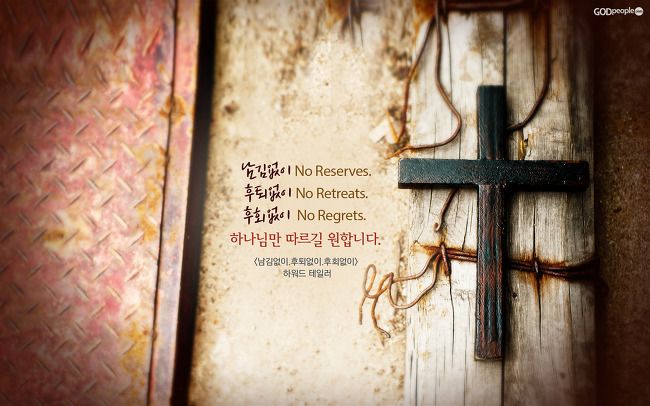 GODpeople.com
남김없이 No Reserves.
후퇴없이 No Retreats.
후회없이 No Regrets.
하나님만 따르길 원합니다.
〈남김없이,후퇴없이,후회없이〉
하워드 테일러